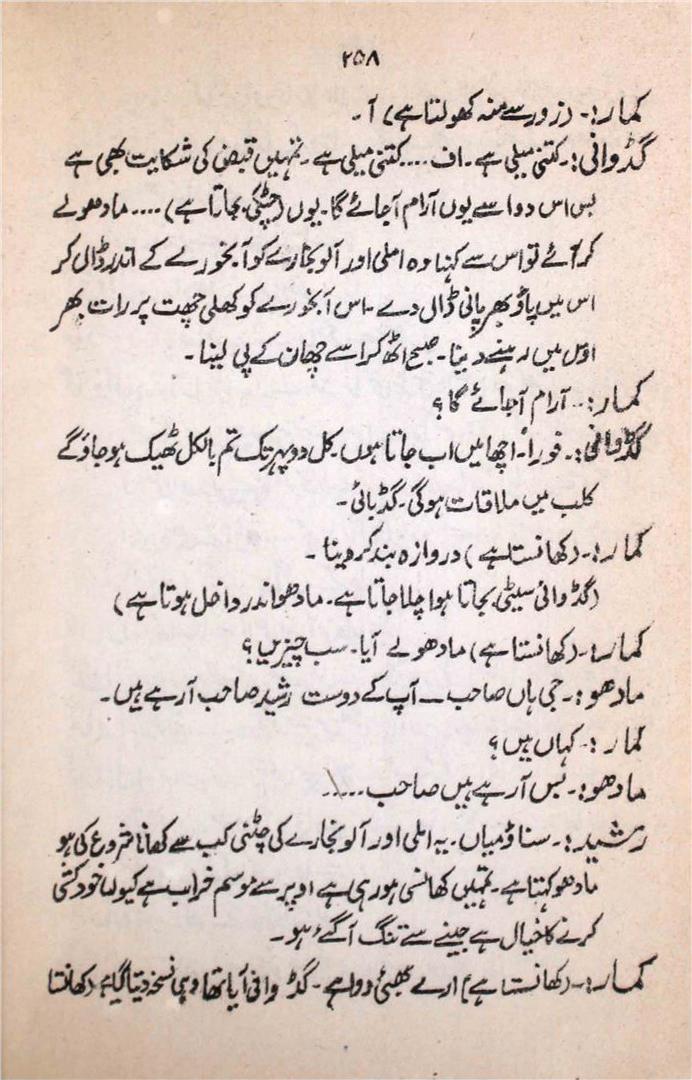 ۲۵۸
کمار:۔ (زور سے منہ کھولتا ہے) آ۔
گڈوانی:۔ کتنی میلی ہے۔ اف .... کتنی میلی ہے۔ تمہیں قبض کی شکایت بھی ہے
بس اس دوا سے یوں آرام آجائے گا۔ یوں (چٹکی بجاتا ہے) .... مادھو لے
کر آئے تو اس سے کہنا وہ املی اور آلو بخارے کو آبخورے کے اندر ڈال کر
اس میں پاؤ بھر پانی ڈال دے۔ اس آبخورے کو کھلی چھت پر رات بھر
اوس میں رہنے دینا۔ صبح اٹھ کر اسے چھان کے پی لینا۔
کمار:۔ آرام آجائے گا؟
گڈوانی:۔ فوراً۔ اچھا میں اب جاتا ہوں۔ کل دوپہر تک تم بالکل ٹھیک ہو جاؤ گے
کلب میں ملاقات ہوگی۔ گڈ بائی۔
کمار:۔ (کھانستا ہے) دروازہ بند کر دینا۔
(گڈوانی سیٹی بجاتا ہوا چلا جاتا ہے۔ مادھو اندر داخل ہوتا ہے)
کمار:۔ (کھانستا ہے) مادھو لے آیا۔ سب چیزیں؟
مادھو:۔ جی ہاں صاحب ۔۔ آپ کے دوست رشید صاحب آ رہے ہیں۔
کمار:۔ کہاں ہیں؟
مادھو:۔ بس آ رہے ہیں صاحب.....
رشید:۔ سناؤ میاں۔ یہ املی اور آلو بخارے کی چٹنی کب سے کھانا شروع کی ہو
مادھو کہتا ہے۔ تمہیں کھانسی ہو رہی ہے اوپر سے موسم خراب ہے کیوں خودکشی
کرنے کا خیال ہے جینے سے تنگ آگئے ہو۔
کمار:۔ (کھانستا ہے) ارے بھئی دوا ہے۔ گڈوانی آیا تھا وہی نسخہ دیتا گیا ہے (کھانستا